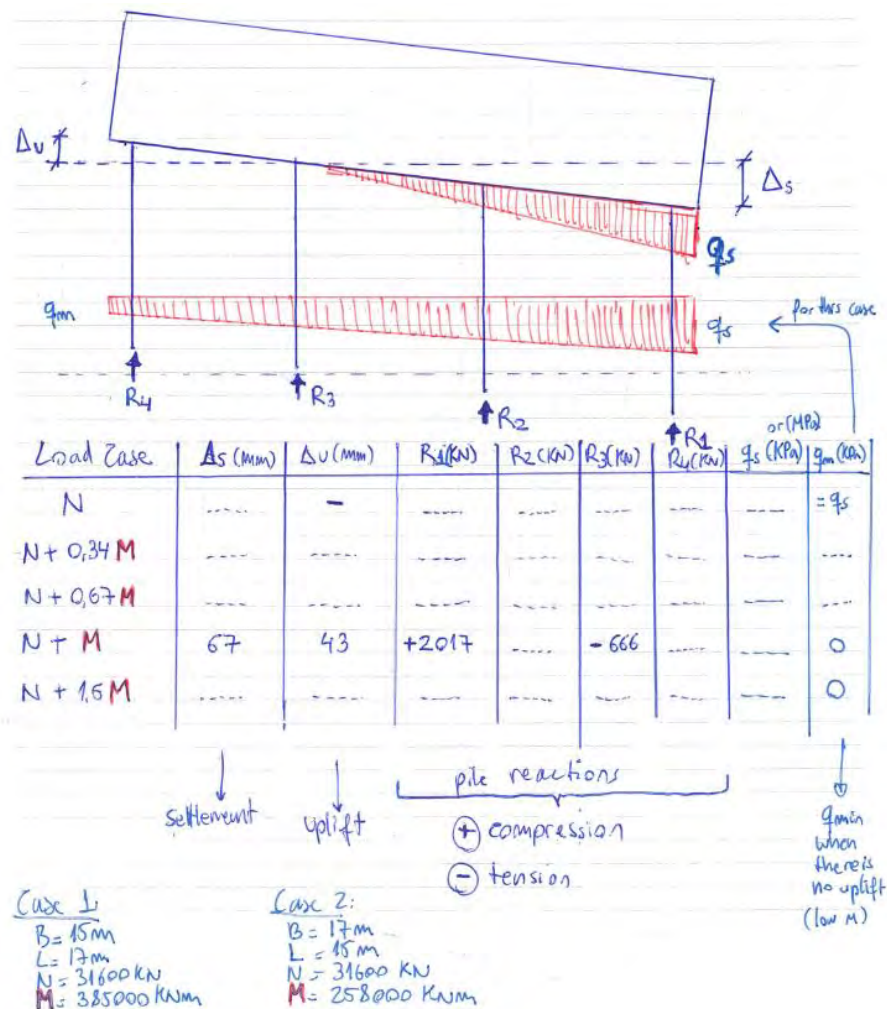 Δu
Δs
qs
qm
qs
for this case
R4
R3
R2
R1
or (MPa)
Load Case Δs (mm) Δu (mm) R1(KN) R2(KN) R3(KN) R4(KN) qs (KPa) qm (KPa)
N ----- - ----- ----- ----- ----- ----- = qs
N + 0,34 M ----- ----- ----- ----- ----- ----- ----- -----
N + 0,67 M ----- ----- ----- ----- ----- ----- ----- -----
N + M 67 43 +2017 ----- -666 ----- ----- 0
N + 1,5 M ----- ----- ----- ----- ----- ----- ----- 0
settlement
uplift
pile reactions
+ compression
- tension
qmin
when
there is
no uplift
(low M)
Case 1:
B= 15m
L= 17m
N= 31600 KN
M= 385000 KNm
Case 2:
B= 17m
L = 15m
N= 31600 KN
M= 258000 KNm